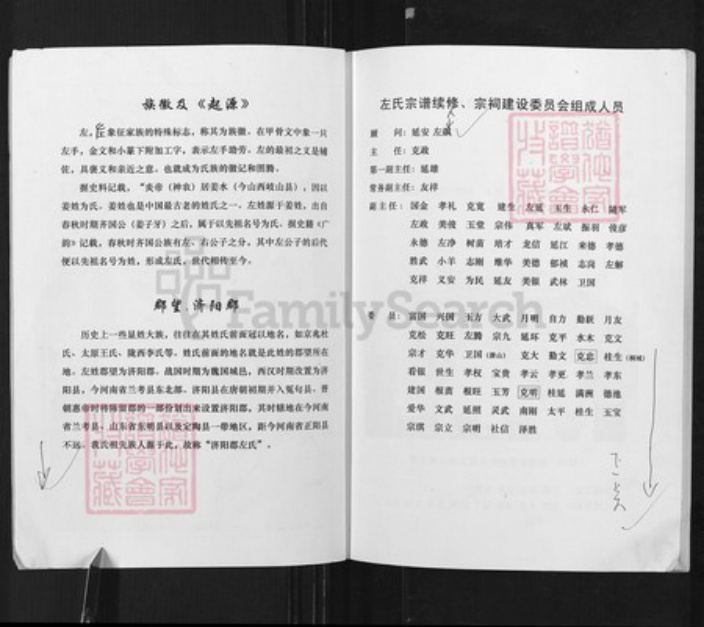 族徽及《起源》
左，是象征家族的特殊标志，称其为族徽。在甲骨文中象一只
左手，金文和小篆下附加工字，表示左手助劳。左的最初之义是辅
佐，具褒义和亲近之意，也就成为氏族的徽记和图腾。
据史料记载，“炎帝（神农）居姜水（今山西岐山县），因以
姜姓为氏。姜姓也是中国最古老的姓氏之一。左姓源于姜姓，出自
春秋时期齐国公（姜子牙）之后，属于以先祖名号为氏。据史籍《广
韵》记载，春秋时齐国公族有左、右公子之分，其中左公子的后代
便以先祖名号为姓，形成左氏，世代相传至今。
郡望 济阳郡
历史上一些显姓大族，往往在其姓氏前面冠以地名，如京兆杜
氏、太原王氏、陇西李氏等。姓氏前面的地名就是此姓的郡望所在
地。左姓郡望为济阳郡。战国时期为魏国城邑，西汉时期改置为济
阳县，今河南省兰考县东北部。济阳县在唐朝初期并入冤句县。晋
朝惠帝时将陈留郡的一部份划出来设置济阳郡，其时辖地在今河南
省兰考县、山东省东明县以及定陶县一带地区，距今河南省正阳县
不远。我氏祖先族人源于此，故称“济阳郡左氏”。
左氏宗谱续修、宗祠建设委员会组成人员
顾 问：延安 左飙
主 任：克政
第一副主任：延雄
常务副主任：友祥
副主任：国金 孝礼 克宽 建生 左延 玉生 永仁 随军
左政 美俊 玉堂 宗伟 真军 左斌 振羽 俊彦
永德 左净 树苗 培才 龙信 延江 来德 孝德
胜武 小羊 志刚 维华 美德 郁桢 志岗 左解
克祥 义安 为民 延友 美银 武林 卫国
委 员：富国 兴国 玉方 大武 月明 自力 勤跃 月友
克松 克旺 左腾 宗九 延环 克平 水木 克文
宗才 克华 卫国（潜山） 克大 勤文 克忠 桂生（桐城）
看银 世生 孝权 宝贵 孝云 孝更 孝兰 孝东
建国 根苗 根旺 玉芳 克明 桂延 满洲 德池
爱华 文武 延照 灵武 南刚 太平 桂生 玉宝
宗琪 宗立 宗明 社信 泽胜
FamilySearch